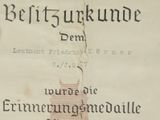 Besitzurkunde
Dem
Leutnant Friedrich Körner
wurde die
Erinnerungsmedaille